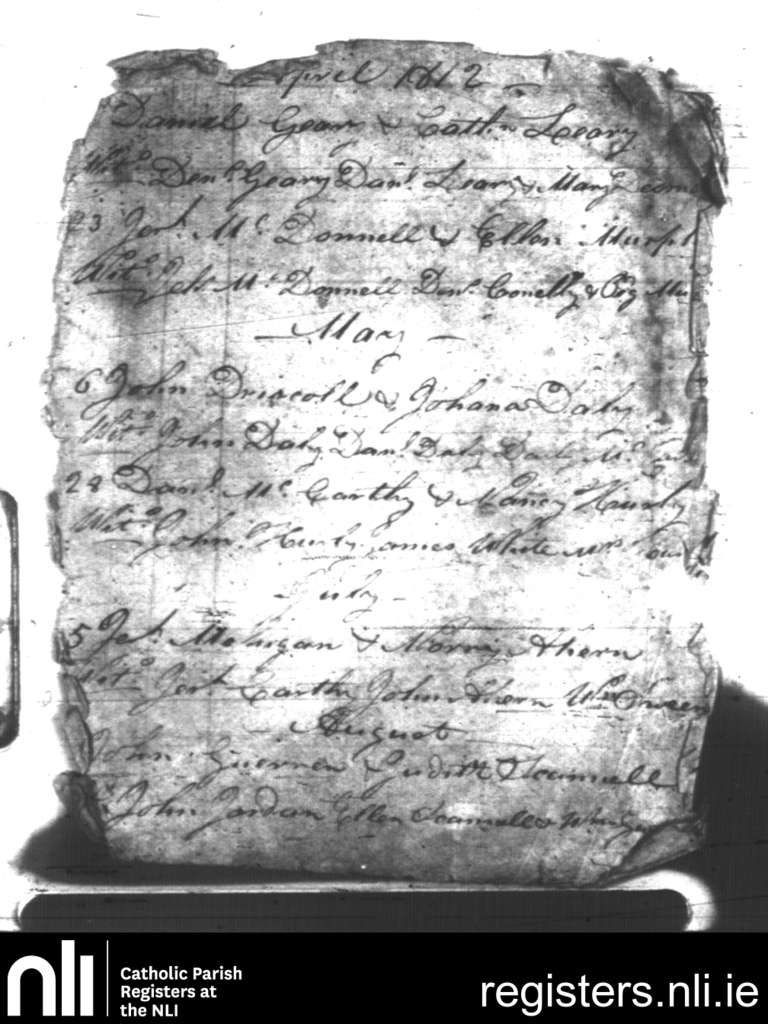 April 1812
Daniel Geary & Cathn Leary
Dens Geary Danl Leary & Mary
23 Jerh Mc Donnell & Ellen Murph
Witns Mc Donnell Danl Conelly &
May
6 John Driscoll & Johana Daly
Witns John Daly Danl Daly
28 Danl Mc Carthy & Nancy Hurly
Witns John Hurly James White
July
5 Jerh Mohigan & Norry Ahern
Witns Jerh Carthy John Ahern Wm
August
John & Judith Scannell
John Jordan Ellen Scannell &
nli
Catholic Parish
Registers at
the NLI
registers.nli.ie